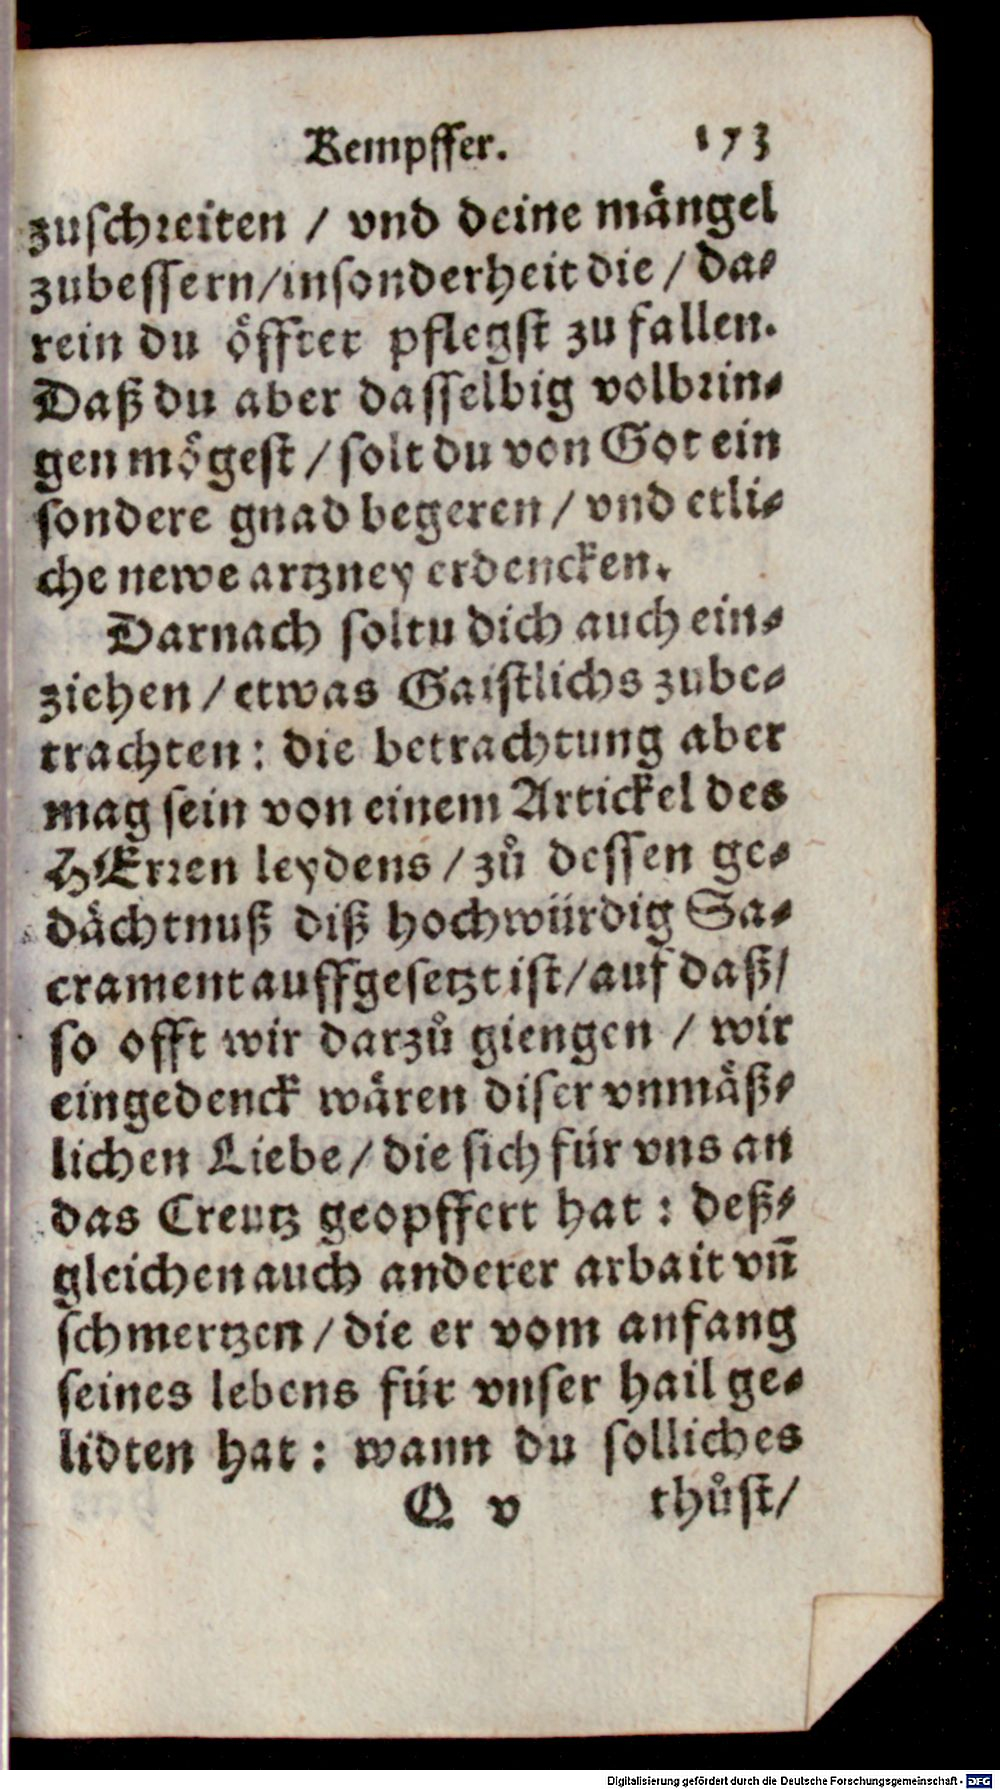 Kempffer. 173
zuschreiten / vnd deine mängel
zubessern/insonderheit die / da⸗
rein du öffter pflegst zu fallen.
Daß du aber dasselbig volbrin⸗
gen mögest / solt du von Got ein
sondere gnad begeren / vnd etli⸗
che newe artzney erdencken.
Darnach soltu dich auch ein⸗
ziehen / etwas Gaistlichs zube⸗
trachten: die betrachtung aber
mag sein von einem Artickel des
HErren leydens / zů dessen ge⸗
dächtnuß diß hochwürdig Sa⸗
crament auffgesetzt ist/auf daß/
so offt wir darzů giengen / wir
eingedenck wären diser vnmäß⸗
lichen Liebe / die sich für vns an
das Creutz geopffert hat : deß⸗
gleichen auch anderer arbait vñ
schmertzen / die er vom anfang
seines lebens für vnser hail ge⸗
lidten hat : wann du solliches
Q v thůst/
Digitalisierung gefördert durch die Deutsche Forschungsgemeinschaft - DFG